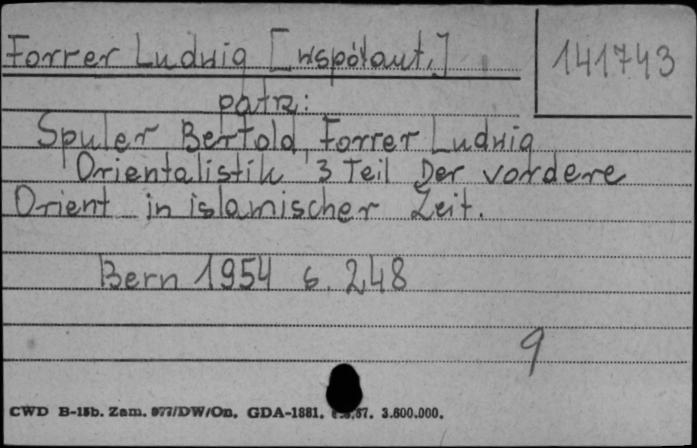 Forrer Ludwig [współaut.]
141743
patrz:
Spuler Bertold, Forrer Ludwig
Orientalistik 3 Teil Der vordere
Orient in islamischer Zeit.
Bern 1954 s. 248
9
CWD B-15b. Zam. 977/DW/On. GDA-1881. 67. 3.600.000.